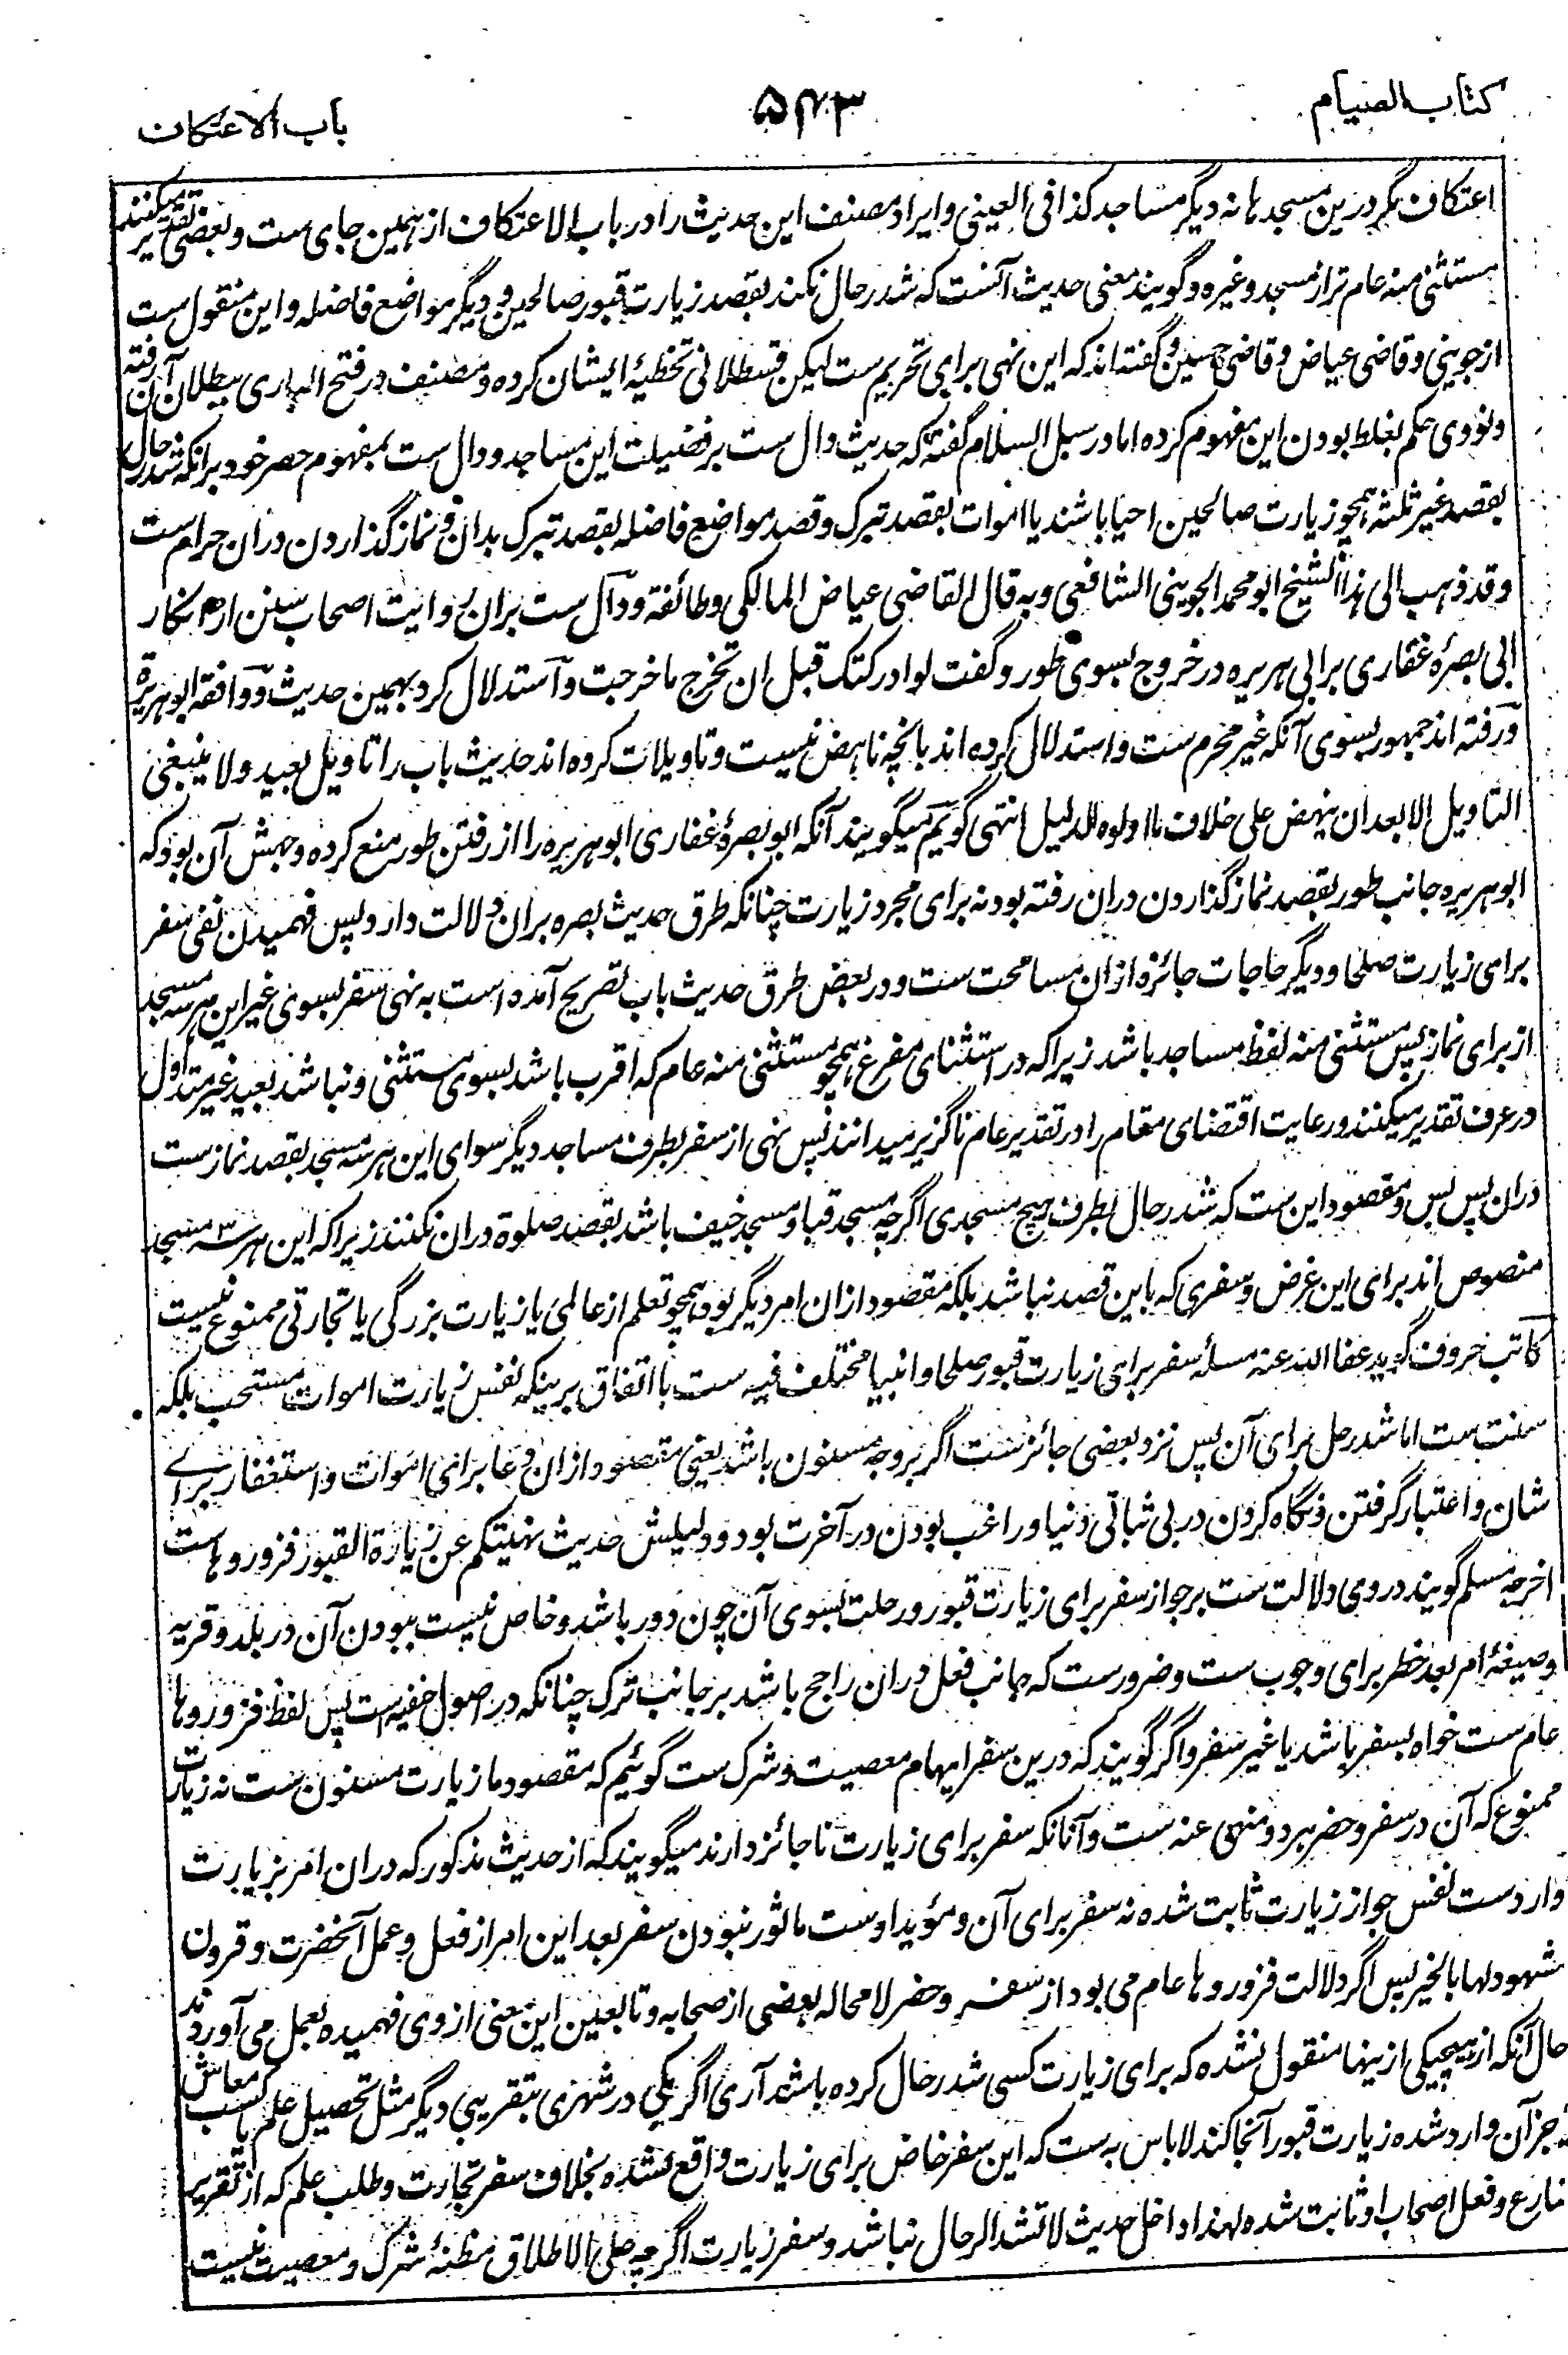 کتاب الصیام
۵۴۳
باب الاعتکاف
اعتکاف مگر درین مسجدها نه دیگر مساجد کذا فی العینی و ایراد مصنف این حدیث را در باب الاعتکاف از همین جای ست و بعضی تقدیر میکنند
مستثنی منه عام تر از مسجد و غیره و گویند معنی حدیث آنست که شد رحال نکند بقصد زیارت قبور صالحین و دیگر مواضع فاضله و این منقول ست
از جوینی و قاضی عیاض و قاضی حسین و گفته اند که این نهی برای تحریم ست لیکن قسطلانی تخطیهٔ ایشان کرده و مصنف در فتح الباری ببطلان آن رفته
و نووی حکم بغلط بودن این مفهوم کرده اما در سبل السلام گفته که حدیث دال ست بر فضیلت این مساجد و دال ست بمفهوم حصر خود بر آنکه شد رحال
بقصد غیر ثلثه همچو زیارت صالحین احیا باشند یا اموات بقصد تبرک و قصد مواضع فاضله بقصد تبرک بدان و نماز گذاردن دران حرام ست
و قد ذهب الی هذا الشیخ ابو محمد الجوینی الشافعی و به قال القاضی عیاض المالکی و طائفة و دال ست بران روایت اصحاب سنن از انکار
ابی بصرهٔ غفاری بر ابی هریره در خروج بسوی طور و گفت لو ادرکتک قبل ان تخرج ما خرجت و استدلال کرد بهمین حدیث و وافقه ابو هریرة
و رفته اند جمهور بسوی آنکه غیر محرم ست و استدلال کرده اند بآنچه ناهض نیست و تاویلات کرده اند حدیث باب را تاویل بعید و لا ینبغی
التاویل الا بعد ان ینهض علی خلاف ما اولوه الدلیل انتهی گویم میگویند آنکه ابو بصرهٔ غفاری ابو هریره را از رفتن طور منع کرده وجهش آن بود که
ابو هریره جانب طور بقصد نماز گذاردن دران رفته بود نه برای مجرد زیارت چنانکه طرق حدیث بصره بران دلالت دارد پس فهمیدن نفی سفر
برای زیارت صلحا و دیگر حاجات جائزه ازان مسامحت ست و در بعض طرق حدیث باب تصریح آمده است به نهی سفر بسوی غیر این هر سه مسجد
از برای نماز پس مستثنی منه لفظ مساجد باشد زیرا که در استثنای مفرغ همچو مستثنی منه عام که اقرب باشد بسوی مستثنی و نباشد بعید غیر متداول
در عرف تقدیر میکنند و رعایت اقتضای مقام را در تقدیر عام ناگزیر میدانند پس نهی از سفر بطرف مساجد دیگر سوای این هر سه مسجد بقصد نماز ست
دران پس بس و مقصود این ست که شد رحال بطرف هیچ مسجدی اگرچه مسجد قبا و مسجد خیف باشد بقصد صلوة دران نکنند زیرا که این هر سه مسجد
منصوص اند برای این غرض و سفری که باین قصد نباشد بلکه مقصود ازان امر دیگر بود همچو تعلم از عالمی یا زیارت بزرگی یا تجارتی ممنوع نیست
کاتب حروف گوید عفا الله عنه مسئلهٔ سفر برای زیارت قبور صلحا و انبیا مختلف فیه ست با اتفاق برینکه نفس زیارت اموات مستحب بلکه
سنت ست اما شد رحل برای آن پس نزد بعضی جائز ست اگر بر وجه مسنون باشد یعنی مقصود ازان دعا برای اموات و استغفار برای
شان و اعتبار گرفتن و نگاه کردن در بی ثباتی دنیا و راغب بودن در آخرت بود و دلیلش حدیث نهیتکم عن زیارة القبور فزوروها ست
اخرجه مسلم گویند در وی دلالت ست بر جواز سفر برای زیارت قبور و رحلت بسوی آن چون دور باشد و خاص نیست ببودن آن در بلد و قریه
و صیغهٔ امر بعد حظر برای وجوب ست و ضرور ست که جانب فعل دران راجح باشد بر جانب ترک چنانکه در اصول حنفیه است پس لفظ فزوروها
عام ست خواه بسفر باشد یا غیر سفر و اگر گویند که درین سفر ایهام معصیت و شرک ست گوئیم که مقصود ما زیارت مسنون ست نه زیارت
ممنوع که آن در سفر و حضر هر دو منهی عنه ست و آنانکه سفر برای زیارت ناجائز دارند میگویند که از حدیث مذکور که دران امر بزیارت
وارد ست نفس جواز زیارت ثابت شده نه سفر برای آن و مؤید اوست ماثور نبودن سفر بعد این امر از فعل و عمل آنحضرت و قرون
مشهود لها بالخیر پس اگر دلالت فزوروها عام می بود از سفر و حضر لامحاله بعضی از صحابه و تابعین این معنی از وی فهمیده بعمل می آوردند
حال آنکه از هیچیکی ازینها منقول نشده که برای زیارت کسی شد رحال کرده باشد آری اگر یکی در شهری بتقریبی دیگر مثل تحصیل علم یا کسب معاش
جز آن وارد شده زیارت قبور آنجا کند لا باس به ست که این سفر خاص برای زیارت واقع نشده بخلاف سفر تجارت و طلب علم که از تقریر
شارع و فعل اصحاب او ثابت شده لهذا داخل حدیث لا تشد الرحال نباشد و سفر زیارت اگرچه علی الاطلاق مظنهٔ شرک و معصیت نیست